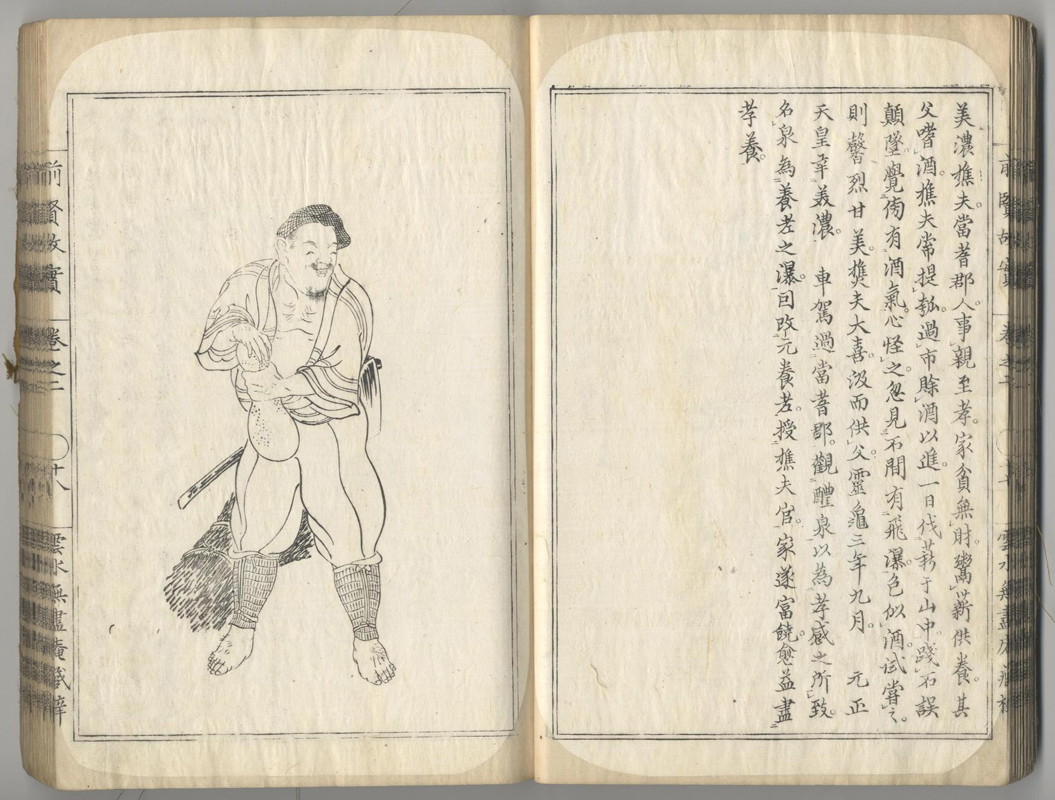 美濃樵夫。當耆郡人。事親至孝。家貧無財。鬻薪供養。其
父嗜酒。樵夫常提瓠過市賒酒以進。一日伐薪于山中。踐石誤
顛墜。覺傍有酒氣。心怪之。忽見石間有飛瀑。色似酒。試嘗之。
則馨烈甘美。樵夫大喜。汲而供父。靈龜三年九月。　元正
天皇幸美濃　車駕過當耆郡。觀醴泉以為孝感之所致。
名泉為養老之瀑。回改元養老。授樵夫官。家遂富饒。愈益盡
孝養。
前賢故實
卷之二
十八
雲水無盡庵藏梓